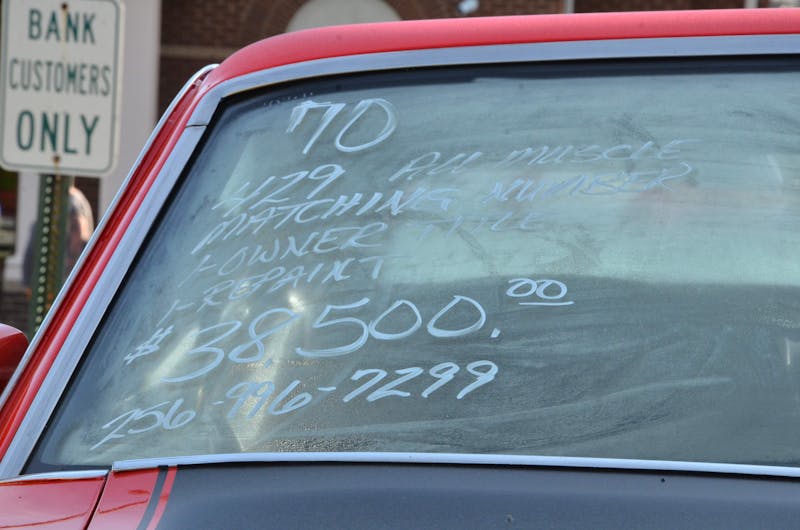 BANK
CUSTOMERS
ONLY
70
429 ALL MUSCLE
MATCHING NUMBER
1-OWNER TITLE
1-REPAINT
$38,500.00
256-996-7299